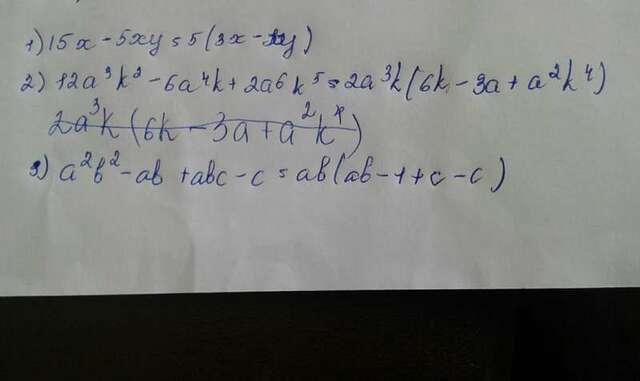 1) 15x - 5xy = 5(3x - xy)
2) 12a³k² - 6a⁴k + 2a⁶k⁵ = 2a³k(6k - 3a + a²k⁴)
2a³k(6k - 3a + a²k⁴)
3) a²b² - ab + abc - c = ab(ab - 1 + c - c)